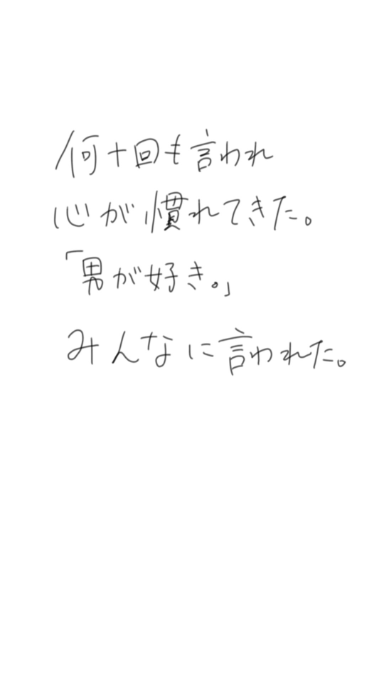 何十回も言われ
心が慣れてきた。
「男が好き。」
みんなに言われた。